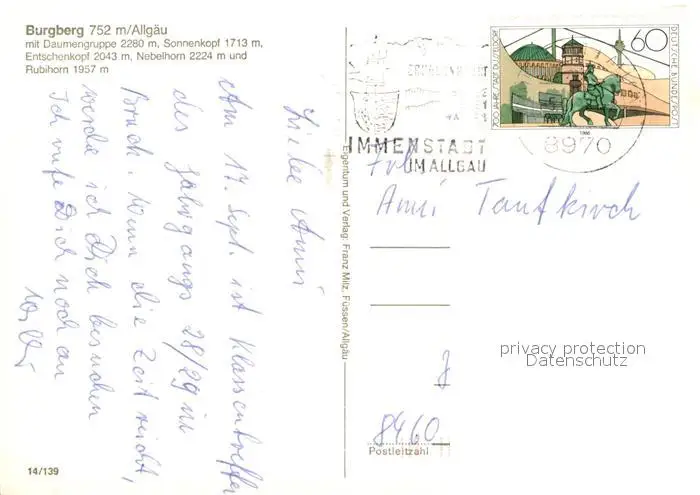 Burgberg 752 m/Allgäu
mit Daumengruppe 2280 m, Sonnenkopf 1713 m,
Entschenkopf 2043 m, Nebelhorn 2224 m und
Rubihorn 1957 m
Liebe Anni
Am 17. Sept. ist Klassentreffen
des Jahrgangs 28/29 in
Bruck. Wenn die Zeit reicht,
werde ich Dich besuchen
Ich rufe Dich noch an
14/139
Eigentum und Verlag: Franz Milz, Füssen/Allgäu
IMMENSTADT
IM ALLGÄU
8970
60
DEUTSCHE BUNDESPOST
700 JAHRE STADT DÜSSELDORF
1988
Anni Taufkirch
privacy protection
Datenschutz
8460
Postleitzahl